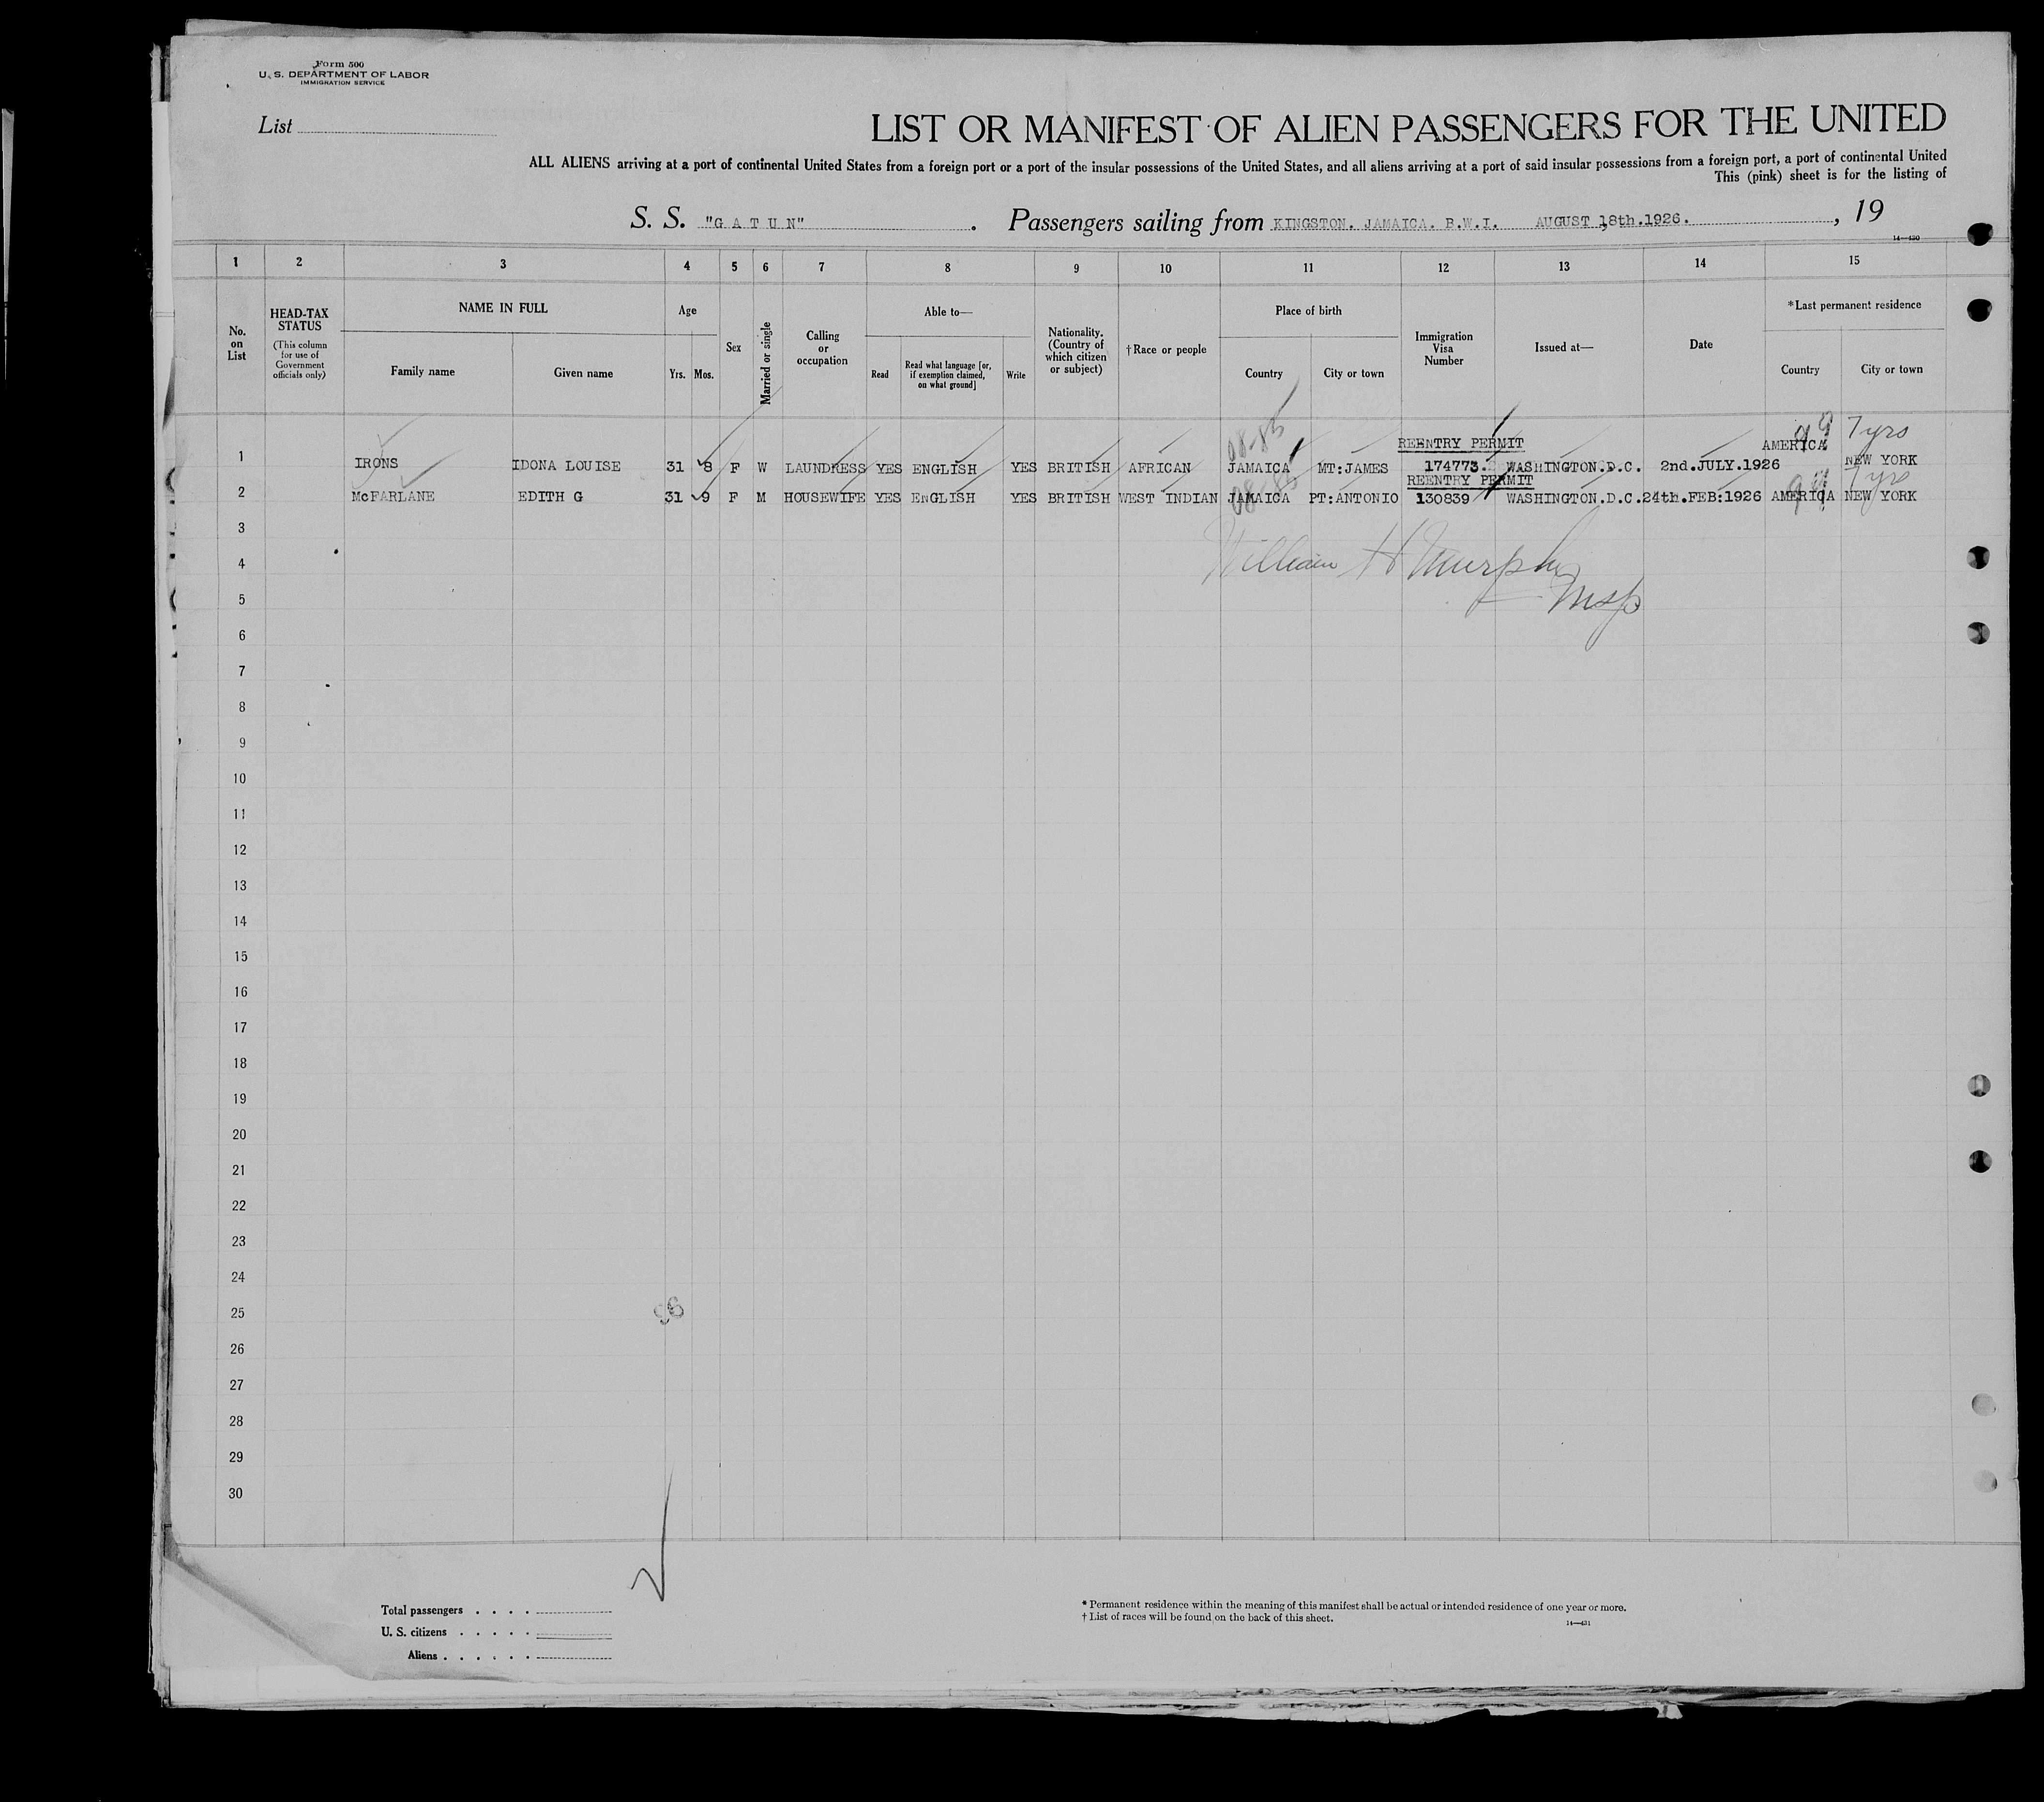 Form 500
U. S. DEPARTMENT OF LABOR
IMMIGRATION SERVICE
List
LIST OR MANIFEST OF ALIEN PASSENGERS FOR THE UNITED
ALL ALIENS arriving at a port of continental United States from a foreign port or a port of the insular possessions of the United States, and all aliens arriving at a port of said insular possessions from a foreign port, a port of continental United
This (pink) sheet is for the listing of
S. S. "G A T U N" . Passengers sailing from KINGSTON. JAMAICA. B.W.I. AUGUST 18th.1926. , 19
14—430
1 2 3 4 5 6 7 8 9 10 11 12 13 14 15
No. on List
HEAD-TAX STATUS
(This column for use of Government officials only)
NAME IN FULL
Family name
Given name
Age
Yrs. Mos.
Sex
Married or single
Calling or occupation
Able to—
Read
Read what language [or, if exemption claimed, on what ground]
Write
Nationality. (Country of which citizen or subject)
†Race or people
Place of birth
Country
City or town
Immigration Visa Number
Issued at—
Date
*Last permanent residence
Country
City or town
08-85 REENTRY PERMIT AMERICA 7 yrs
1 IRONS IDONA LOUISE 31 8 F W LAUNDRESS YES ENGLISH YES BRITISH AFRICAN JAMAICA MT:JAMES 174773. WASHINGTON.D.C. 2nd.JULY.1926 NEW YORK
08-85 REENTRY PERMIT 7 yrs
2 McFARLANE EDITH G 31 9 F M HOUSEWIFE YES ENGLISH YES BRITISH WEST INDIAN JAMAICA PT:ANTONIO 130839 WASHINGTON.D.C. 24th.FEB:1926 AMERICA NEW YORK
3
4 William H Murphy
5 Insp
6
7
8
9
10
11
12
13
14
15
16
17
18
19
20
21
22
23
24
25 96
26
27
28
29
30
Total passengers . . . .
U. S. citizens . . . . .
Aliens . . . . . .
* Permanent residence within the meaning of this manifest shall be actual or intended residence of one year or more.
† List of races will be found on the back of this sheet.
14—431